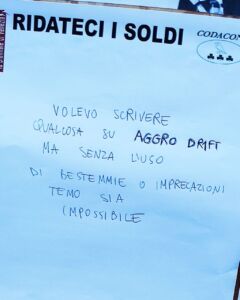 RIDATECI I SOLDI
CODACON
VOLEVO SCRIVERE
QUALCOSA SU AGGRO DR1FT
MA SENZA L'USO
DI BESTEMMIE O IMPRECAZIONI
TEMO SIA
IMPOSSIBILE